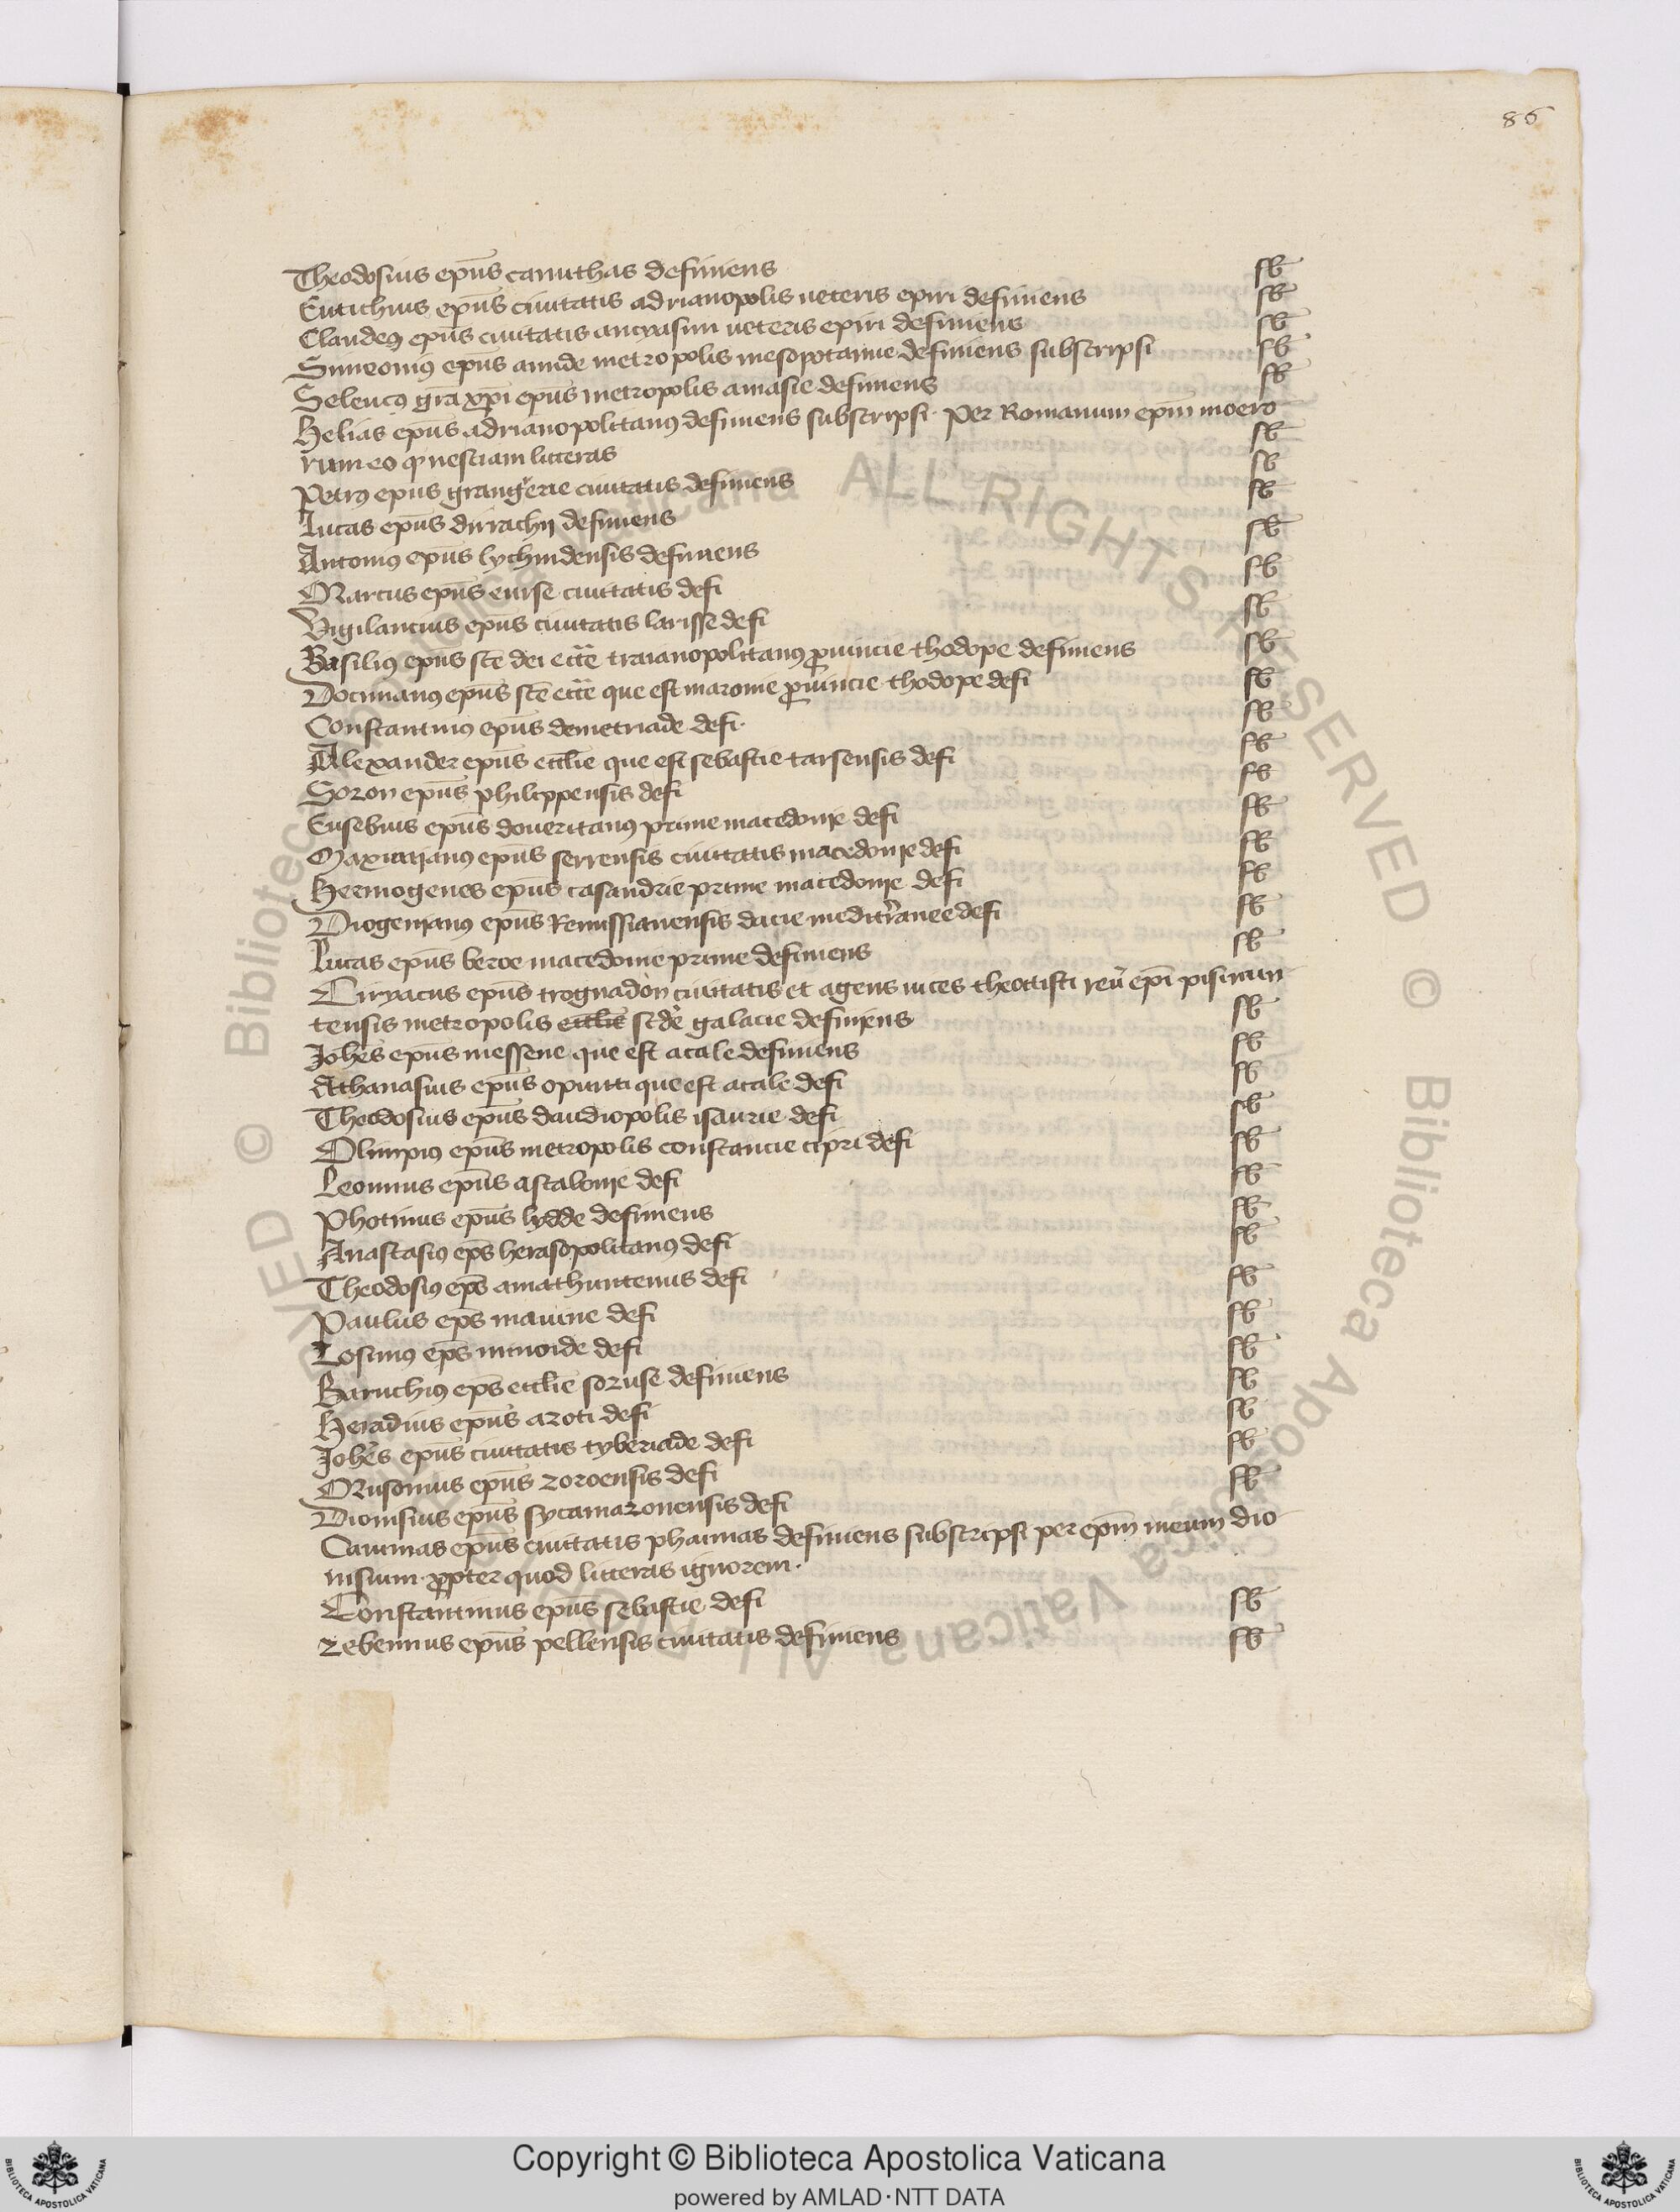 86
Theodosius epūs canuthas definiens sb
Eutichius epūs ciuitatis adrianopolis ueteris epiri definiens sb
Claudeꝰ epūs ciuitatis ancyasim ueteris epiri definiens sb
Simeoniꝰ epūs amide metropolis mesopotamie definiens subscripsi sb
Seleucꝰ grā xp̄i epūs metropolis amasie definiens sb
Helias epūs adrianopolitanꝰ definiens subscripsi · Per Romanum ep̄m moero
rum eo ꝙ nesciam litteras sb
Petrꝰ epūs grangerie ciuitatis definiens sb
Lucas epūs dirrachij definiens sb
Antoniꝰ epūs lychindensis definiens sb
Marcus epūs eurse ciuitatis defi sb
Vigilancius epūs ciuitatis larisse defi sb
Basiliꝰ epūs sc̄e dei ecc̄e traianopolitanꝰ ꝓuincie thodope definiens sb
Docimanꝰ epūs sc̄e ecc̄e que est maronie ꝓuincie thodope defi sb
Constantinꝰ epūs demetriade defi · sb
Alexander epūs eccl̄ie que est sebastie tarsensis defi sb
Sozon epūs philippensis defi sb
Eusebius epūs doueritanꝰ prime macedonie defi sb
Maximianꝰ epūs serrensis ciuitatis macedonie defi sb
Hermogenes epūs casandrie prime macedonie defi sb
Diogenianꝰ epūs Remissianensis dacie mediterranee defi sb
Lucas epūs beroe macedonie prime definiens sb
Ciryacus epūs trognadon ciuitatis et agens uices theottisti reū ep̄i pisinun
tensis metropolis eccl̄ie sc̄de galacie definiens sb
Joh̄es epūs messene que est acaie definiens sb
Athanasius epūs opunti que est acaie defi sb
Theodosius epūs daudiopolis isaurie defi sb
Olimpiꝰ epūs metropolis constancie cipri defi sb
Leoninus epūs ascalonie defi sb
Photinus epūs lydde definiens sb
Anastasiꝰ ep̄s herasopolitanꝰ defi sb
Theodosiꝰ ep̄s amathuntenus defi sb
Paulus ep̄s maiume defi sb
Zosimꝰ ep̄s minoide defi sb
Baruchiꝰ ep̄s eccl̄ie sozuse definiens sb
Heradius epūs azoti defi sb
Joh̄es epūs ciuitatis tyberiade defi sb
Musonius epūs zoroensis defi sb
Dionisius epūs sycamazonensis defi
Caiumas epūs ciuitatis phainas definiens subscripsi per ep̄m meum dio
nisium · ꝓpter quod litteras ignorem ·
Constantinus epūs sebastie defi sb
Zebennus epūs pellensis ciuitatis definiens sb
© Biblioteca Apostolica Vaticana ALL RIGHTS RESERVED © Biblioteca Apostolica Vaticana ALL RIGHTS RESERVED
Copyright © Biblioteca Apostolica Vaticana
powered by AMLAD·NTT DATA
BIBLIOTECA APOSTOLICA VATICANA
BIBLIOTECA APOSTOLICA VATICANA